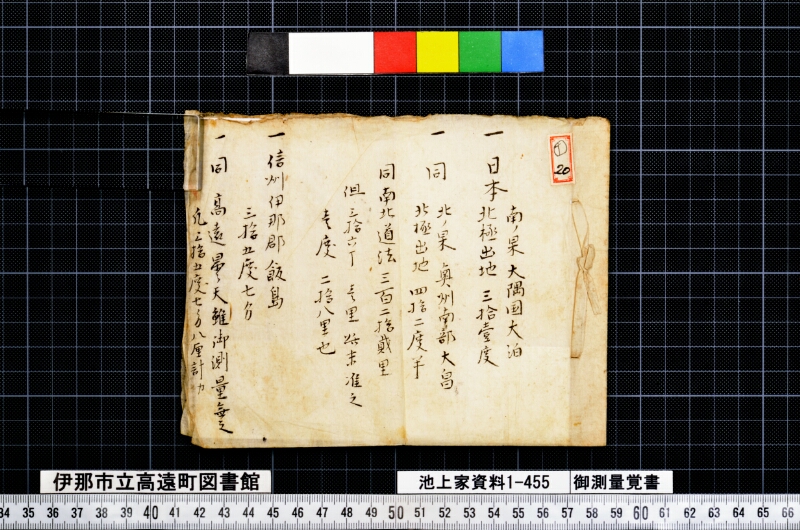 ①
20
南ノ果 大隅国大泊
一 日本
北極出地 三拾壹度
北ノ果 奥州南部大畠
一 同
北極出地 四拾二度半
同南北道法 三百二拾貳里
但 三拾六丁 壱里 始末准之
壱度 二拾八里也
一 信州伊那郡飯島
三拾五度七分
一 同 高遠 曇天雖御測量無之
凡三拾五度七分八厘計カ
伊那市立高遠町図書館
池上家資料1-455
御測量覚書
34 35 36 37 38 39 40 41 42 43 44 45 46 47 48 49 50 51 52 53 54 55 56 57 58 59 60 61 62 63 64 65 66